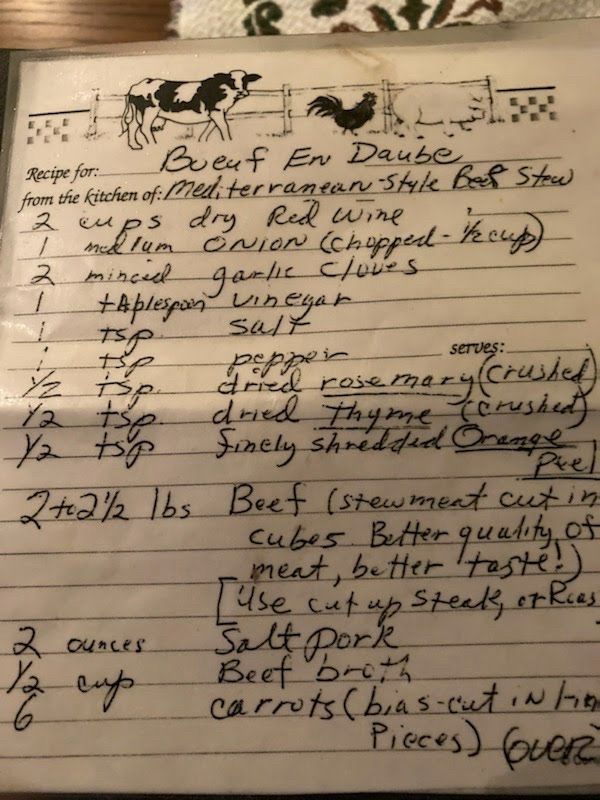 Recipe for: Boeuf En Daube
from the kitchen of: Mediterranean-Style Beef Stew
2 cups dry Red Wine
1 medium ONION (chopped - 1/2 cup)
2 minced garlic Cloves
1 tAblespoon vinegar
1 tsp. salt
1 tsp pepper
serves:
1/2 tsp. dried rosemary (crushed)
1/2 tsp. dried thyme (crushed)
1/2 tsp finely shredded Orange
Peel
2 to 2 1/2 lbs Beef (stewmeat cut in
cubes. Better quality of
meat, better taste!)
[Use cut up steak, or Roas
2 ounces Salt pork
1/2 cup Beef broth
6 carrots (bias-cut in 1-in
Pieces) (over